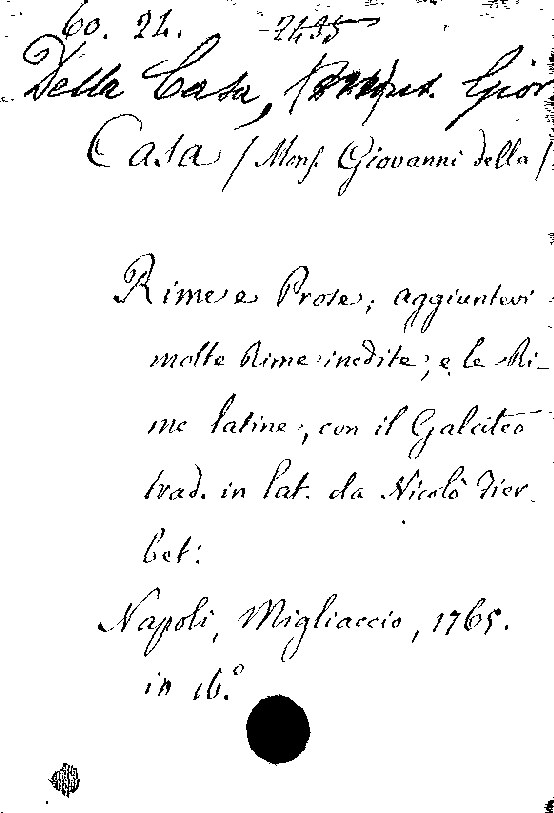 60. 21. 2435
Della Casa, Gior
Casa / Mons. Giovanni della /
Rime e Prose; aggiuntevi
molte Rime inedite; e le Ri-
me latine, con il Galateo
trad. in lat. da Nicolò Fier-
bet:
Napoli, Migliaccio, 1765.
in 16.º